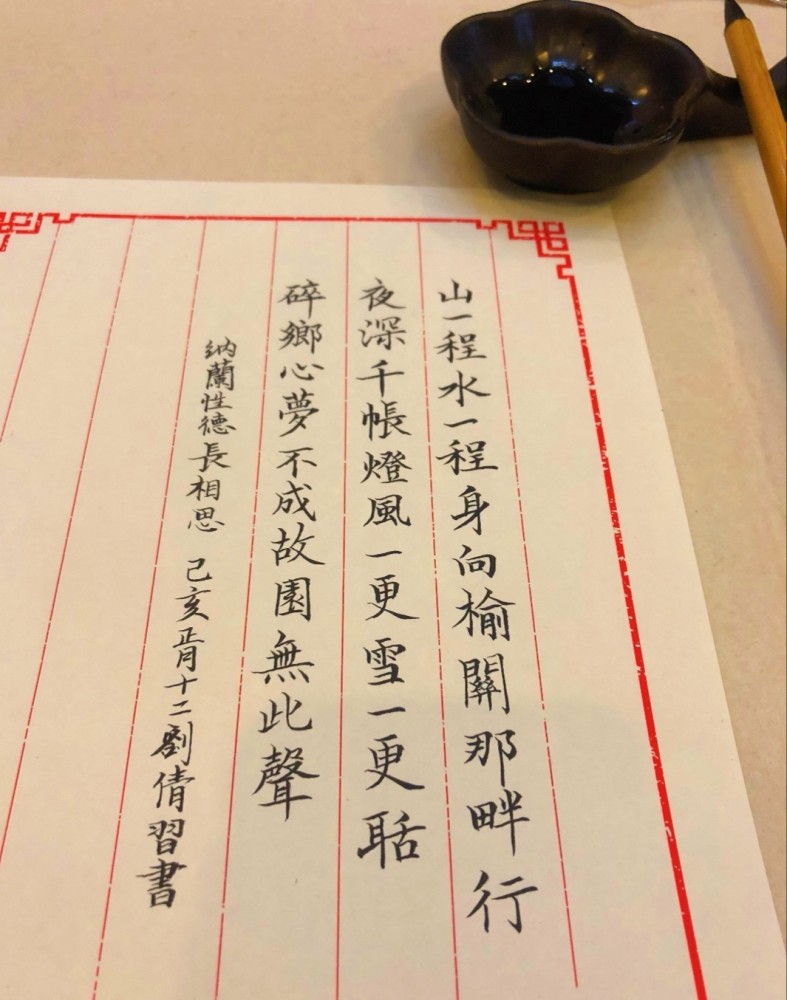 山一程水一程身向榆關那畔行
夜深千帳燈風一更雪一更聒
碎鄉心夢不成故園無此聲
納蘭性德長相思 己亥正月十二劉倩習書